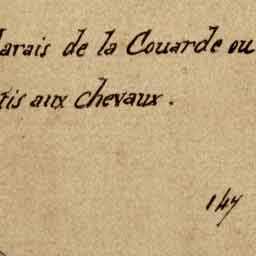 Marais de la Couarde ou
tis aux chevaux.
147